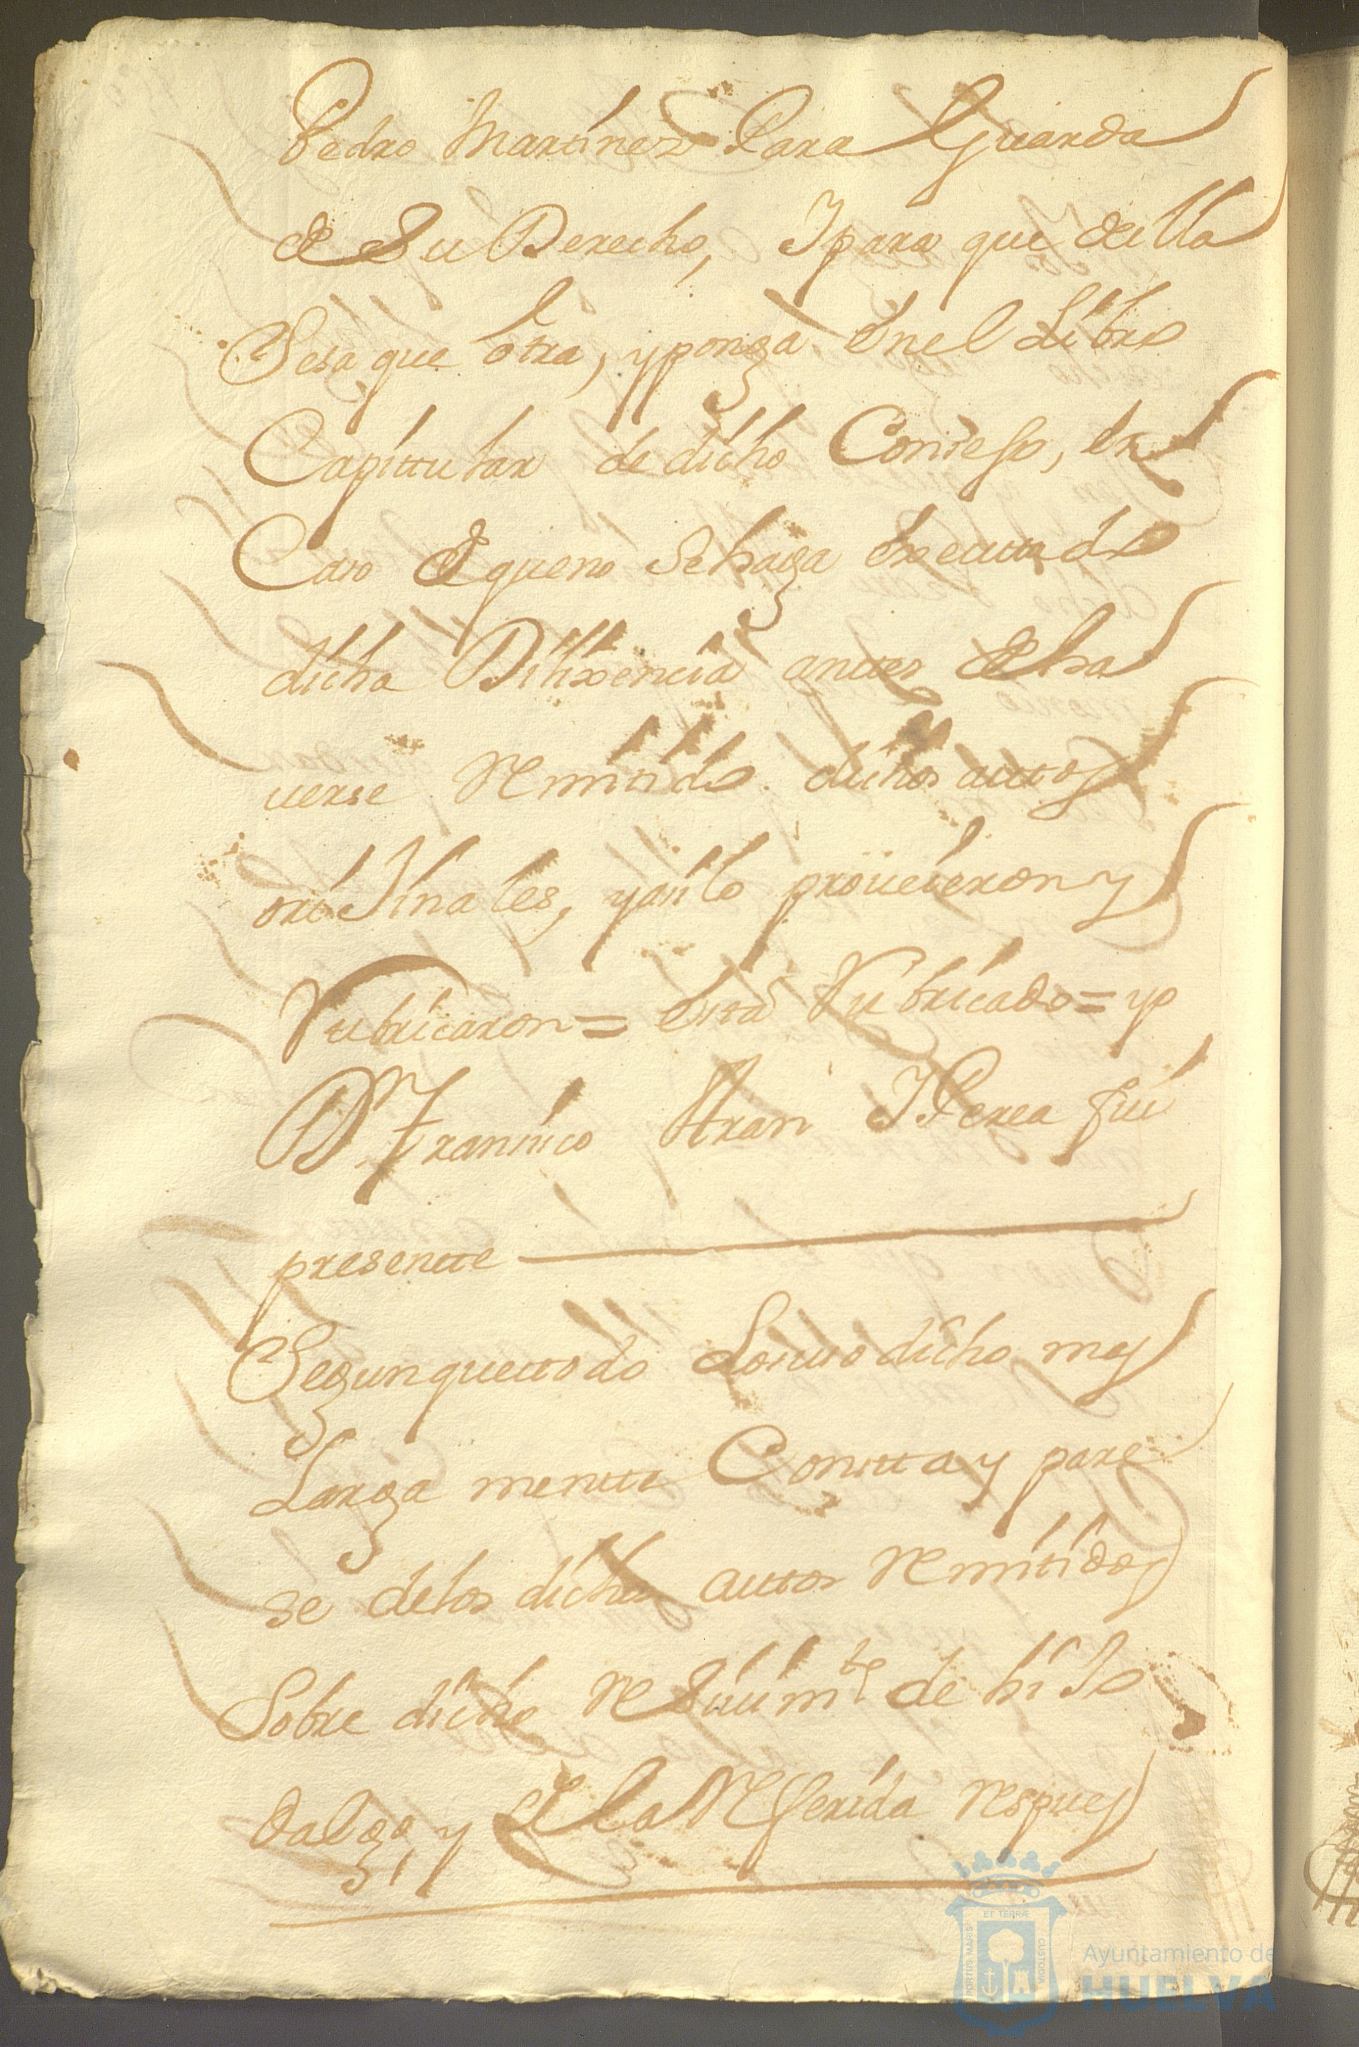 Pedro Martinez Para Guarda
de Su Derecho, Y para que della
Sesaque otra, y ponga enel Libro
Capittular de dicho Consejo, en
Caso de queno Sehaga executtado
dicha Dilixencia anttes de ha
verse Remitido dichos auttos
oriJinales, y asilo proveieron y
Rubricaron = esta Rubricado = yo
Dn Francisco Y Perea fui
presentte
Segun que ttodo Lo susodicho mas
Larga mentte Constta y pare
se delos dichos auttos Remitidos
Sobre dicho Resivimto de hiJo
dalgo, y de la Referida respues
Ayuntamiento de
HUELVA
PORTUS MARIS
ET TERRÆ
CUSTODIA